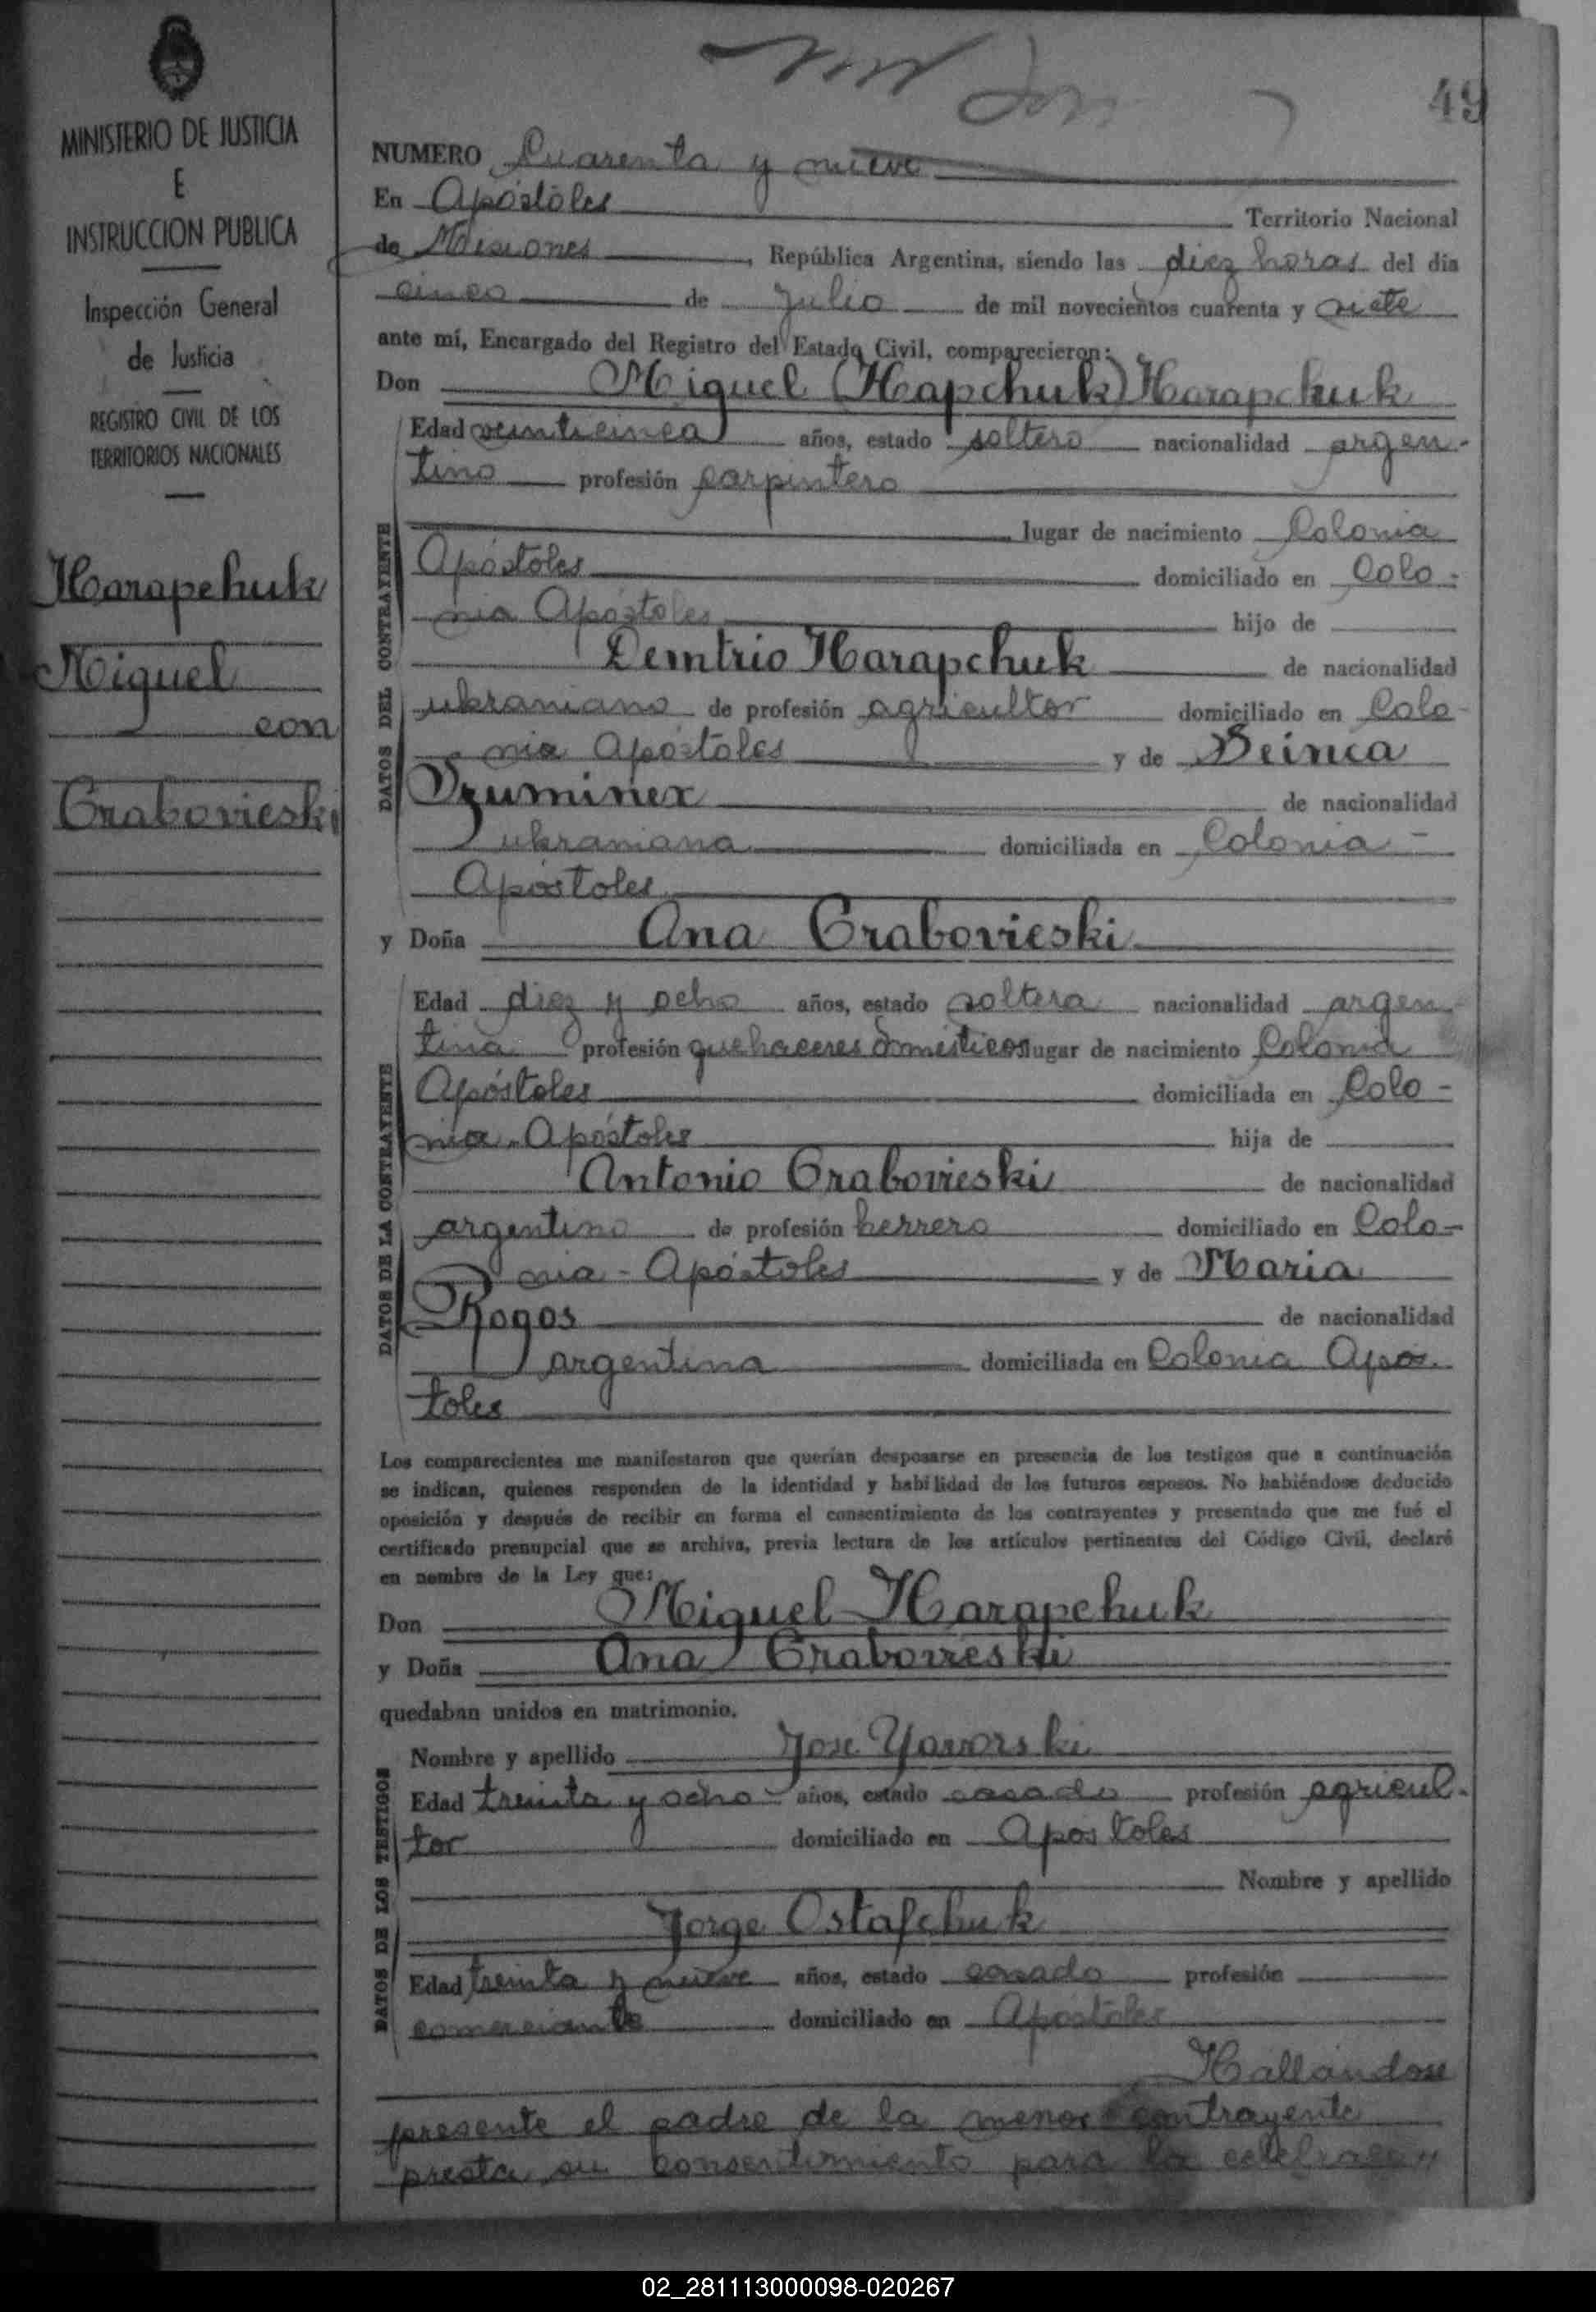 49
MINISTERIO DE JUSTICIA
E
INSTRUCCION PUBLICA
Inspección General
de Justicia
REGISTRO CIVIL DE LOS
TERRITORIOS NACIONALES
Harapchuk
Miguel
con
Grabovieski
NUMERO Cuarenta y nueve
En Apóstoles Territorio Nacional
de Misiones, República Argentina, siendo las diez horas del día
cinco de Julio de mil novecientos cuarenta y siete
ante mí, Encargado del Registro del Estado Civil, comparecieron:
Don Miguel (Hapchuk) Harapchuk
Edad veinticinco años, estado soltero nacionalidad argen-
tino profesión carpintero
lugar de nacimiento Colonia
Apóstoles domiciliado en Colo-
nia Apóstoles hijo de
Demtrio Harapchuk de nacionalidad
ukraniano de profesión agricultor domiciliado en Colo-
nia Apóstoles y de
de nacionalidad
ukraniana domiciliada en Colonia -
Apóstoles
DATOS DEL CONTRAYENTE
y Doña Ana Grabovieski
Edad diez y ocho años, estado soltera nacionalidad argen-
tina profesión quehaceres domésticos lugar de nacimiento Colonia
Apóstoles domiciliada en Colo-
nia - Apóstoles hija de
Antonio Grabovieski de nacionalidad
argentino de profesión herrero domiciliado en Colo-
nia - Apóstoles y de Maria
Rogos de nacionalidad
argentina domiciliada en Colonia Apos-
toles
DATOS DE LA CONTRAYENTE
Los comparecientes me manifestaron que querían desposarse en presencia de los testigos que a continuación
se indican, quienes responden de la identidad y habilidad de los futuros esposos. No habiéndose deducido
oposición y después de recibir en forma el consentimiento de los contrayentes y presentado que me fué el
certificado prenupcial que se archiva, previa lectura de los artículos pertinentes del Código Civil, declaré
en nombre de la Ley que:
Don Miguel Harapchuk
y Doña Ana Grabovieski
quedaban unidos en matrimonio.
Nombre y apellido Jose Yavorski
Edad treinta y ocho años, estado casado profesión agricul-
tor domiciliado en Apostoles
Nombre y apellido
Jorge Ostafchuk
Edad treinta y nueve años, estado casado profesión
comerciante domiciliado en Apóstoles
DATOS DE LOS TESTIGOS
Hallandose
presente el padre de la menor contrayente
presta su consentimiento para la
02_281113000098-020267